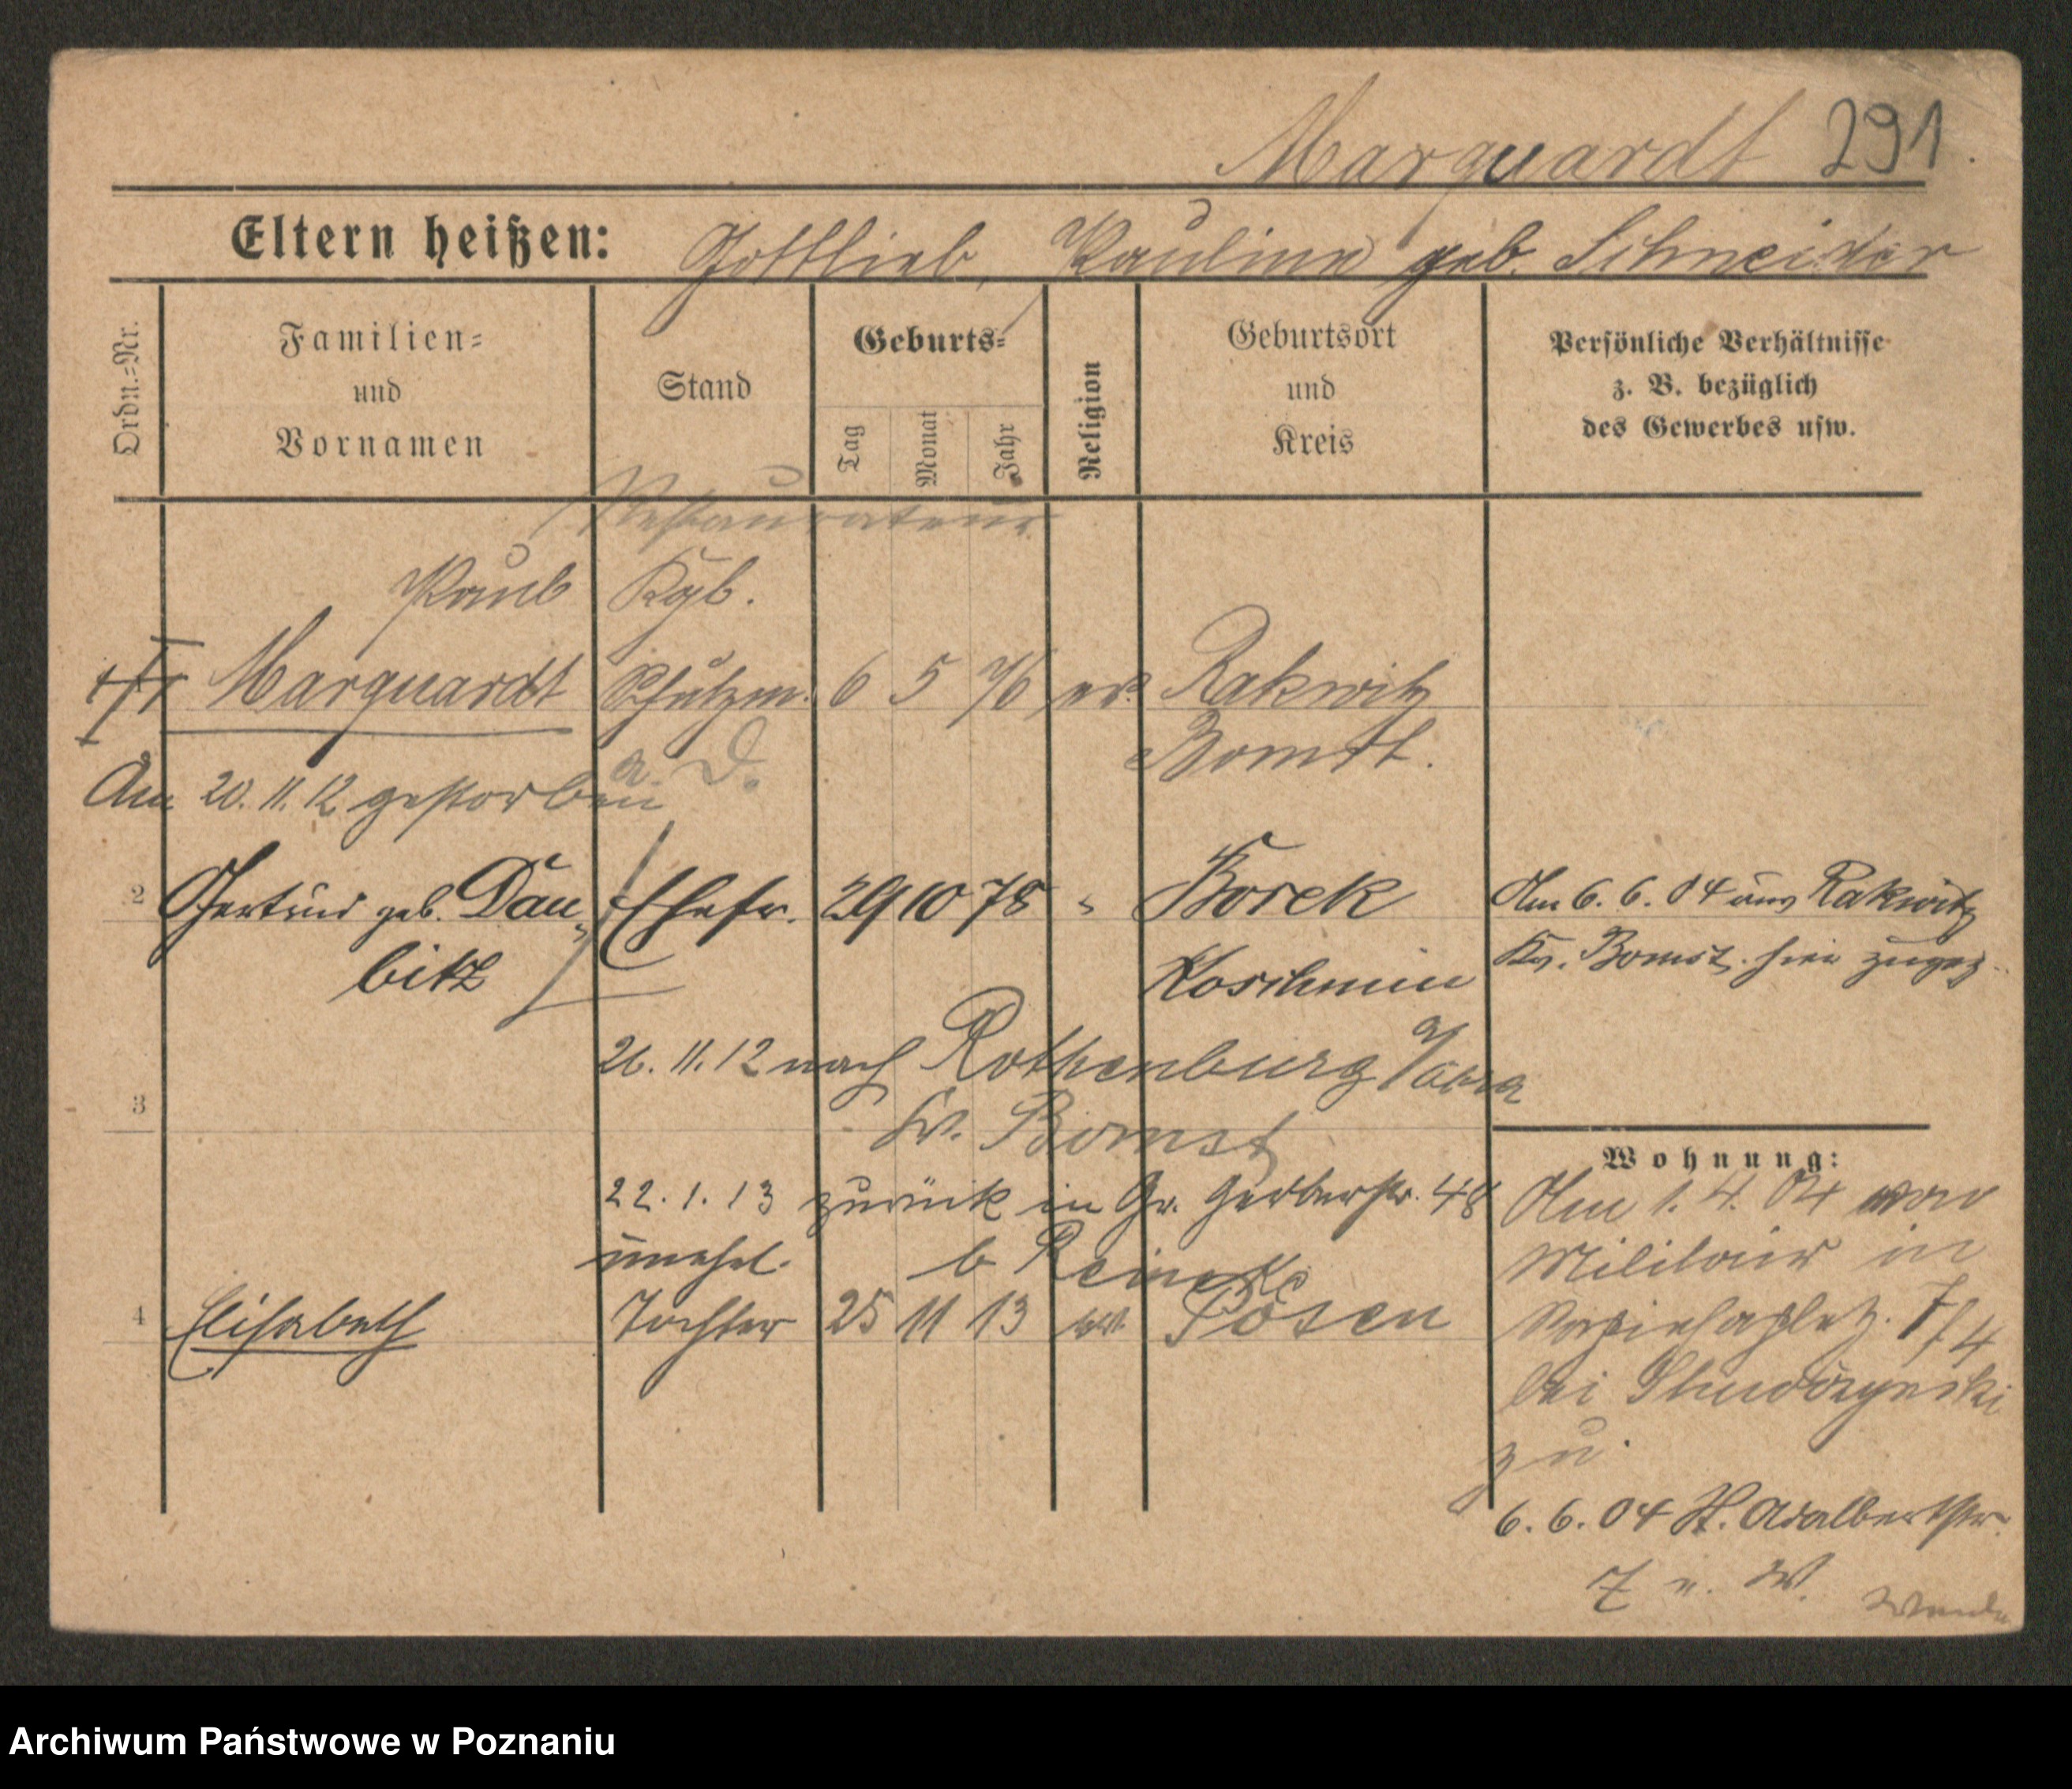 Marquardt 291.
Eltern heißen: Gottlieb, Pauline geb. Schneider
Ordn.=Nr.
Familien=
und
Vornamen
Stand
Geburts=
Tag
Monat
Jahr
Religion
Geburtsort
und
Kreis
Persönliche Verhältnisse
z. B. bezüglich
des Gewerbes usw.
Restaurateur
Paul Kgl.
Marquardt Schutzm. 6 5 76 ev. Rakwitz
a. D. Bomst.
Am 20. 11. 12 gestorben
2 Gertrud geb. Dau- Ehefr. 29 10 78 " Borek
bitz Koschmin
Am 6. 6. 04 aus Rakwitz
Kr. Bomst. hier zugez.
26. 11. 12 nach Rothenburg a/Obra
3 Kr. Bomst
22. 1. 13 zurück in Gr. Gerberstr. 48
unehel. b Reinecke
4 Elisabeth Tochter 25 11 13 ev. Posen
Wohnung:
Am 1. 4. 04 vom
Militair in
Sapiehaplatz. 7/4
bei
zu.
6. 6. 04 St. Adalbertstr.
7 n. W.
Wende
Archiwum Państwowe w Poznaniu